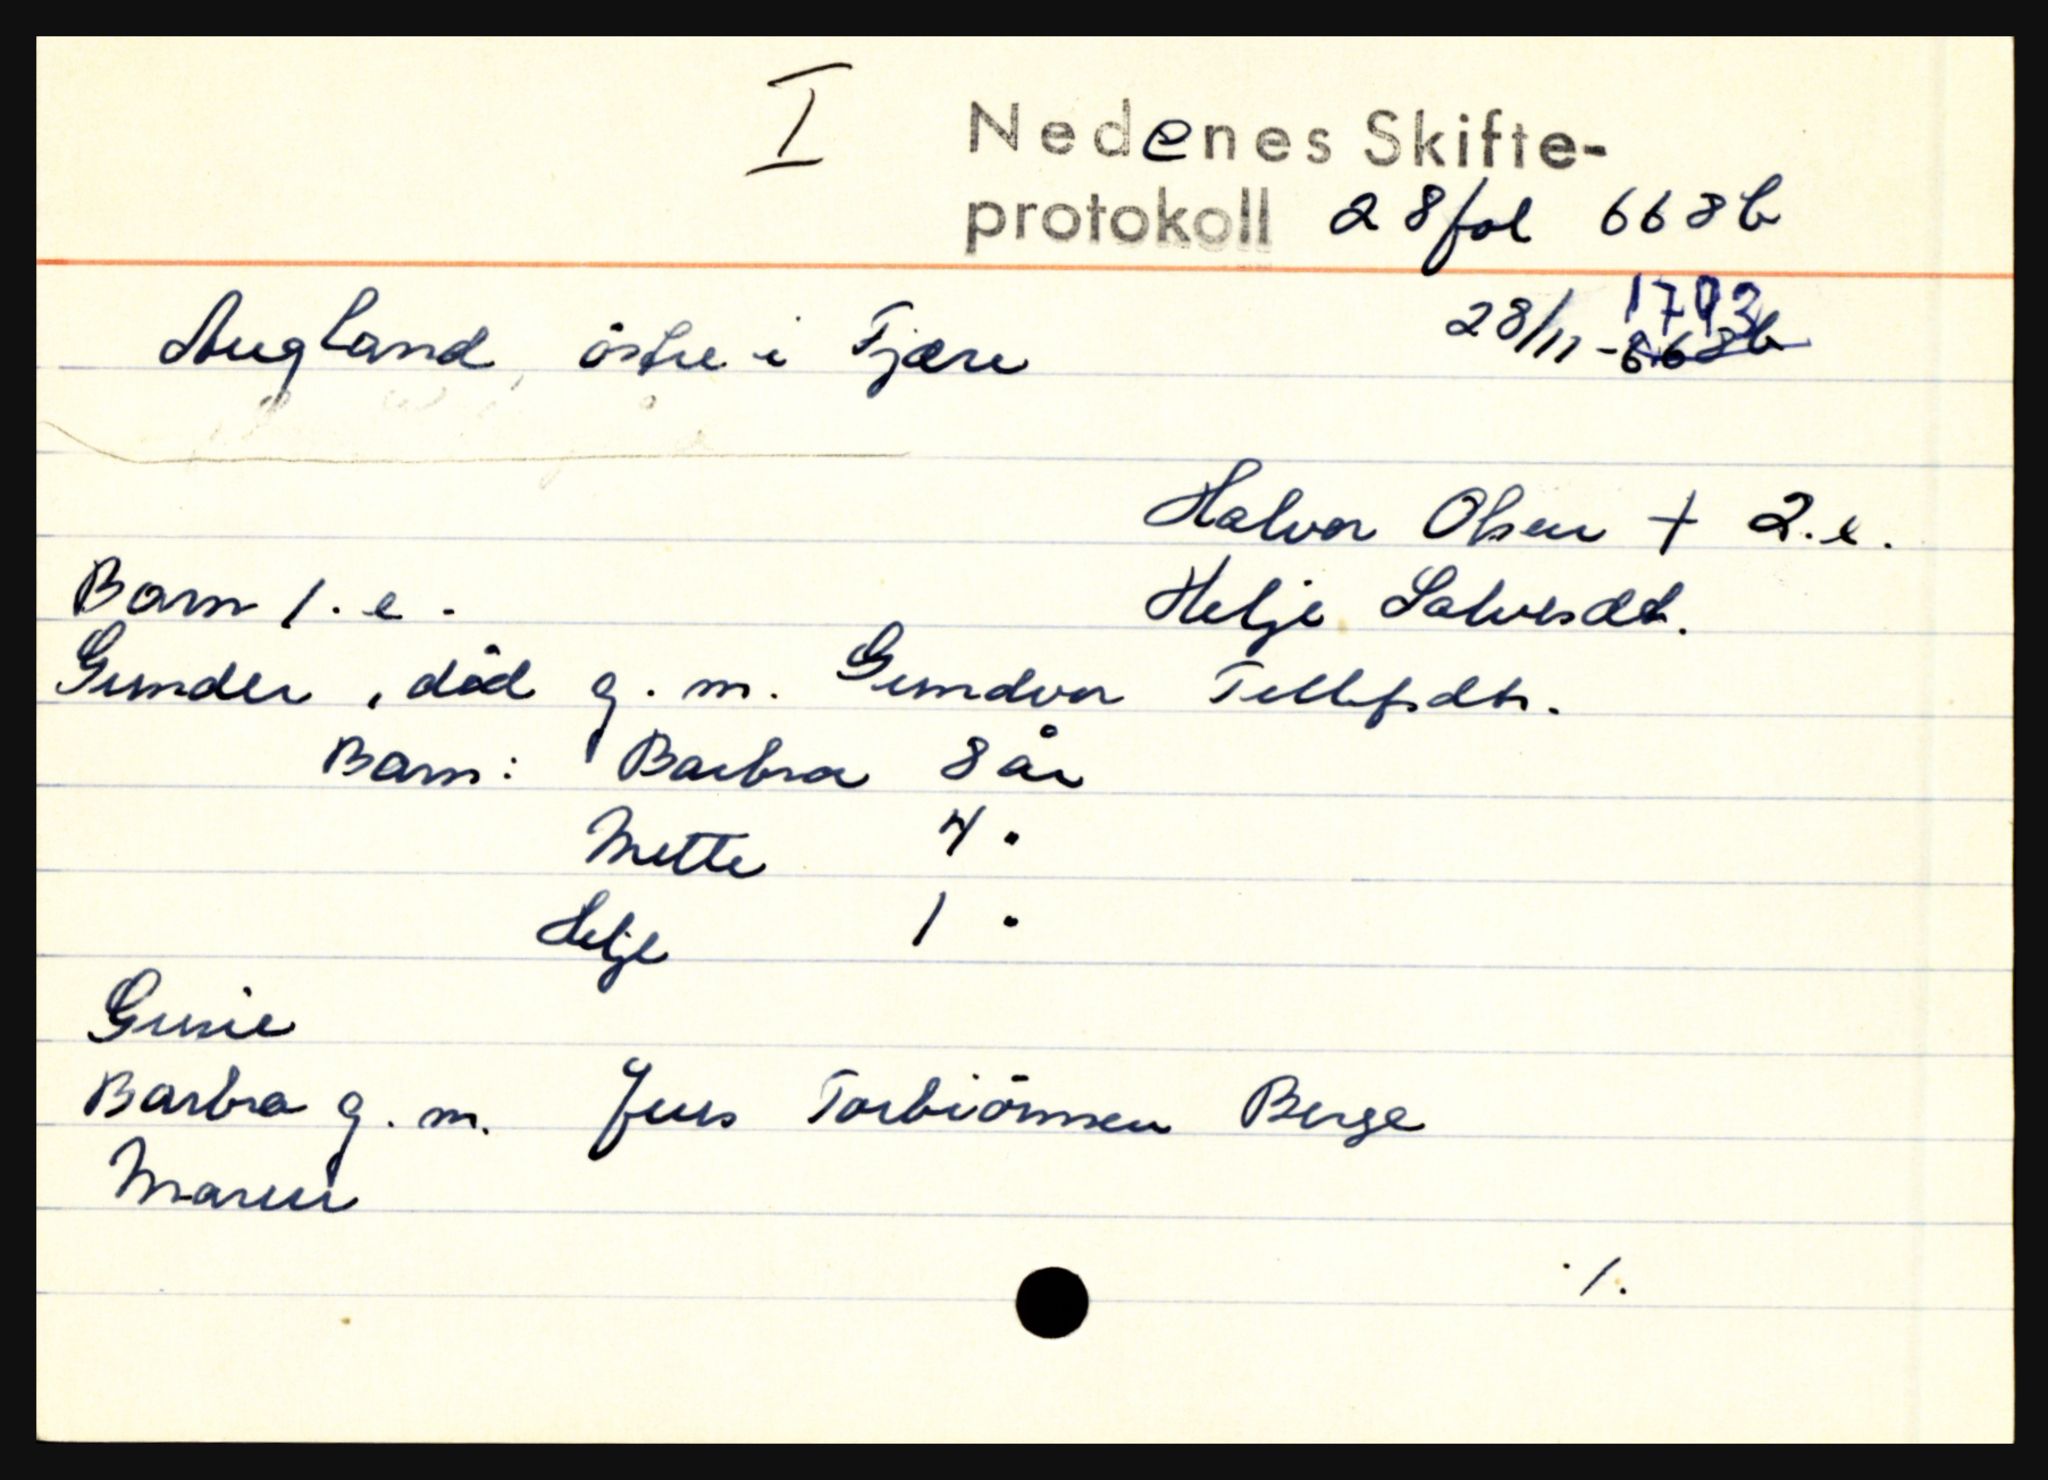 I Nedenes Skifte-
protokoll 28 fol 668 b
1793
Augland, östre i Fjære 28/11 - 668b
Halvor Olsen + 2.e.
Barn 1.e. Helje Salvesdt.
Gunder, död g.m. Gundvor Tellefsdtr.
Barn: Barbra 8 år
Mette 4 "
Helje 1 "
Gunie
Barbra g.m. Jens Torbiörnsen Berge
Maren
./.